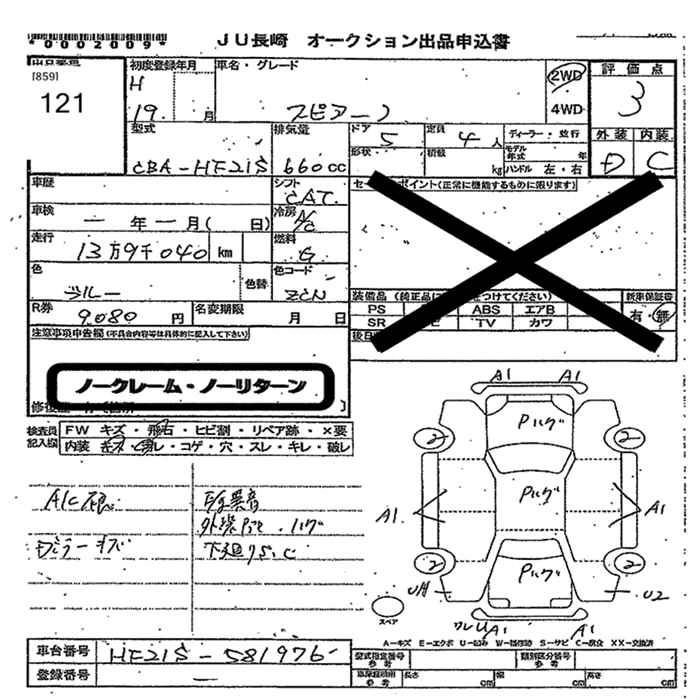 *0002009*
JU長崎 オークション出品申込書
[859]
121
初度登録年月
H
19. 月
車名・グレード
スピアーノ
2WD
4WD
評価点
3
外装 内装
D C
型式
CBA-HF21S
排気量
660cc
ドア 5
形状
定員 4人
積載 kg
ディーラー・並行
モデル年式 年
ハンドル 左・右
車歴
シフト
CAT.
車検
一年一月( 日)
冷房
A/C
走行
13万9千040 km
燃料
G
色
ブルー
色替
色コード
ZCN
R券
9080円
名変期限
月 日
ポイント(正常に機能するものに限ります)
装備品
PS
ABS エアB
SR
TV カワ
新車保証書
有・無
注意事項申告欄(不具合内容等は具体的に記入して下さい)
ノークレーム・ノーリターン
検査員記入欄
FW キズ・飛石・ヒビ割・リペア跡・×要
内装 キズ・汚レ・コゲ・穴・スレ・キレ・破レ
E/g異音
A/C
ハゲ
A1 A1
Pハゲ
2 2
Pハゲ
A1. A1
2 2
Pハゲ
U2
A1 A1
スペア
A-キズ E-エクボ U-凹み W-補修跡 S-サビ C-腐食 XX-交換済
車台番号 HF21S-581976
登録番号 —
型式指定番号 参考
類別区分番号 参考
長さ cm 幅 cm 高さ cm